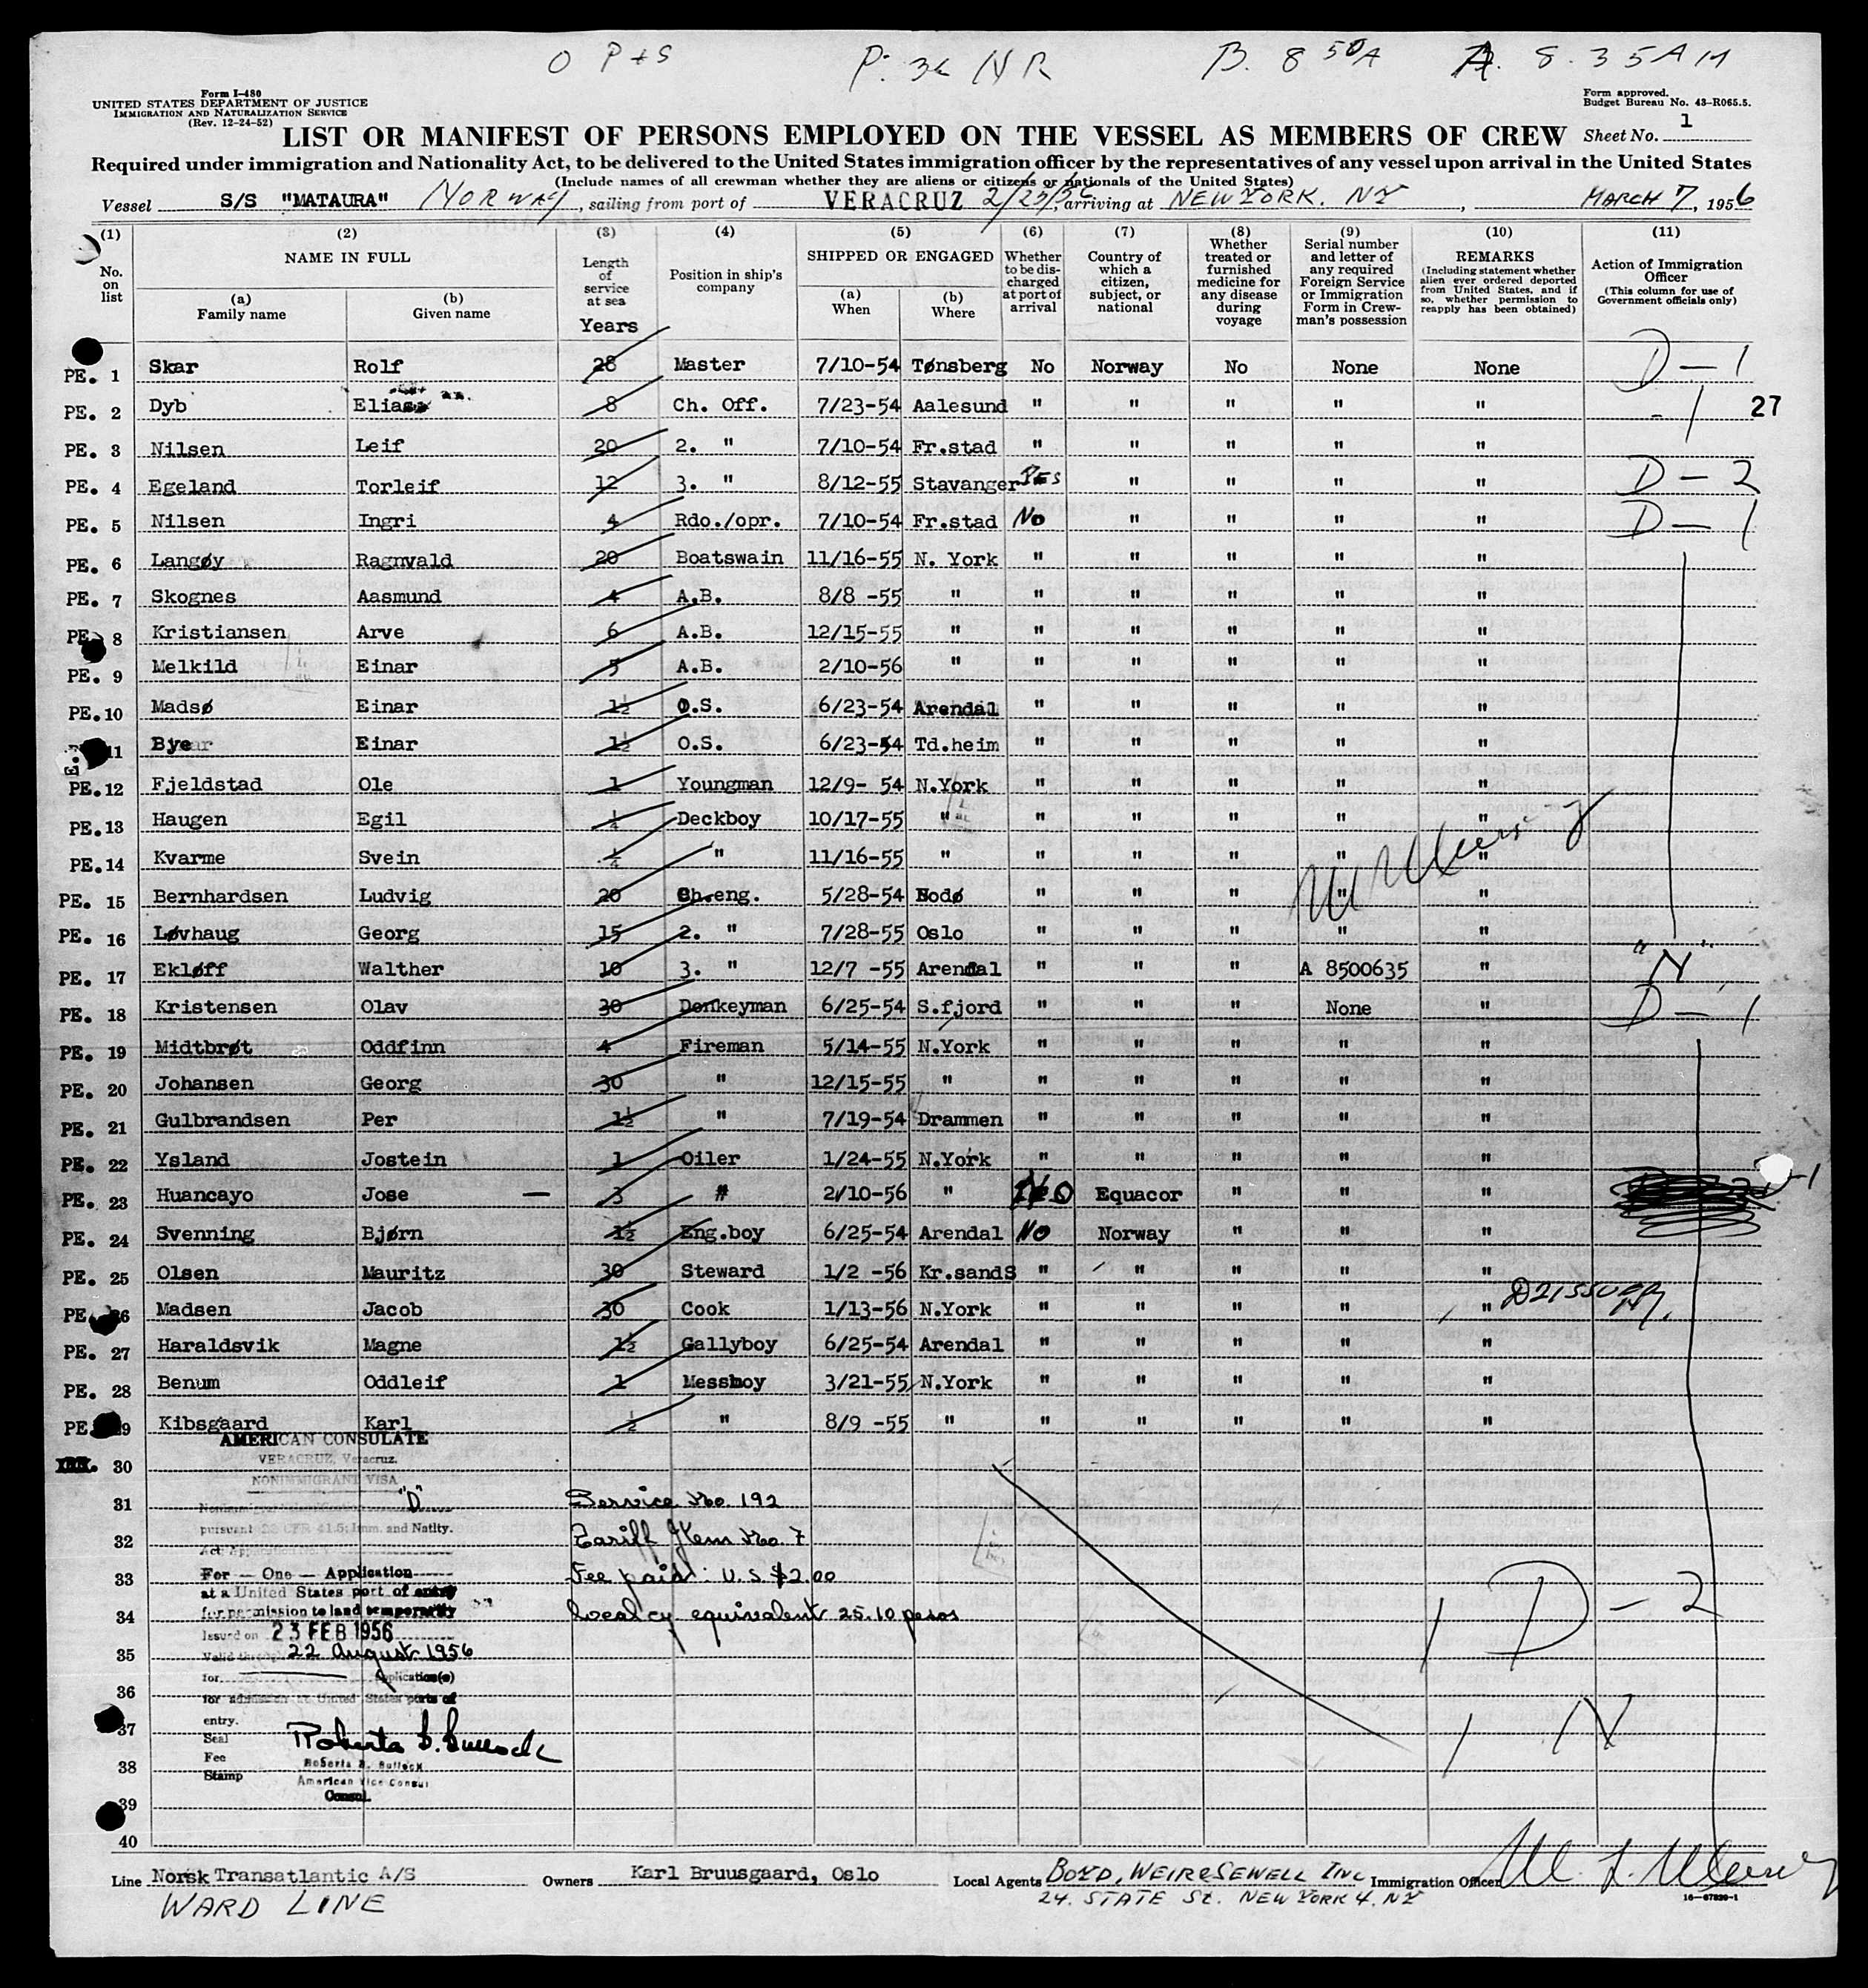 O P+S P. 3L N R B. 8 50 A A. 8. 35 A M
Form I-480
UNITED STATES DEPARTMENT OF JUSTICE
IMMIGRATION AND NATURALIZATION SERVICE
(Rev. 12-24-52)
Form approved.
Budget Bureau No. 43-R065.5.
LIST OR MANIFEST OF PERSONS EMPLOYED ON THE VESSEL AS MEMBERS OF CREW Sheet No. 1
Required under immigration and Nationality Act, to be delivered to the United States immigration officer by the representatives of any vessel upon arrival in the United States
(Include names of all crewman whether they are aliens or citizens or nationals of the United States)
Vessel S/S "MATAURA" NORWAY, sailing from port of VERACRUZ 2/25/56, arriving at NEW YORK. NY, MARCH 7, 1956
(1) (2) (3) (4) (5) (6) (7) (8) (9) (10) (11)
No. on list
NAME IN FULL
(a) Family name
(b) Given name
Length of service at sea
Years
Position in ship's company
SHIPPED OR ENGAGED
(a) When
(b) Where
Whether to be discharged at port of arrival
Country of which a citizen, subject, or national
Whether treated or furnished medicine for any disease during voyage
Serial number and letter of any required Foreign Service or Immigration Form in Crewman's possession
REMARKS
(Including statement whether alien ever ordered deported from United States, and if so, whether permission to reapply has been obtained)
Action of Immigration Officer
(This column for use of Government officials only)
PE. 1 Skar Rolf 28 Master 7/10-54 Tønsberg No Norway No None None D-1
PE. 2 Dyb Elias 8 Ch. Off. 7/23-54 Aalesund " " " " " - 1 27
PE. 3 Nilsen Leif 20 2. " 7/10-54 Fr.stad " " " " "
PE. 4 Egeland Torleif 12 3. " 8/12-55 Stavanger YES " " " " D-2
PE. 5 Nilsen Ingri 4 Rdo./opr. 7/10-54 Fr.stad No " " " " D-1
PE. 6 Langøy Ragnvald 20 Boatswain 11/16-55 N. York " " " " "
PE. 7 Skognes Aasmund 4 A.B. 8/8 -55 " " " " " "
PE. 8 Kristiansen Arve 6 A.B. 12/15-55 " " " " " "
PE. 9 Melkild Einar 5 A.B. 2/10-56 " " " " " "
PE. 10 Madsø Einar 1½ O.S. 6/23-54 Arendal " " " " "
11 Bye Einar 1½ O.S. 6/23-54 Td.heim " " " " "
PE. 12 Fjeldstad Ole 1 Youngman 12/9- 54 N.York " " " " "
PE. 13 Haugen Egil ¼ Deckboy 10/17-55 " " " " " "
PE. 14 Kvarme Svein ¼ " 11/16-55 " " " " " "
PE. 15 Bernhardsen Ludvig 20 Ch.eng. 5/28-54 Bodø " " " " "
PE. 16 Løvhaug Georg 15 2. " 7/28-55 Oslo " " " " "
PE. 17 Ekløff Walther 10 3. " 12/7 -55 Arendal " " " A 8500635 " "N"
PE. 18 Kristensen Olav 30 Donkeyman 6/25-54 S.fjord " " " None " D-1
PE. 19 Midtbrøt Oddfinn 4 Fireman 5/14-55 N.York " " " " "
PE. 20 Johansen Georg 30 " 12/15-55 " " " " " "
PE. 21 Gulbrandsen Per 1½ " 7/19-54 Drammen " " " " "
PE. 22 Ysland Jostein 1 Oiler 1/24-55 N.York " " " " "
PE. 23 Huancayo Jose — 3 " 2/10-56 " No Equacor " " " D-1
PE. 24 Svenning Bjørn 1½ Eng.boy 6/25-54 Arendal No Norway " " "
PE. 25 Olsen Mauritz 30 Steward 1/2 -56 Kr.sandS " " " " "
PE. 26 Madsen Jacob 30 Cook 1/13-56 N.York " " " " "
PE. 27 Haraldsvik Magne 1½ Gallyboy 6/25-54 Arendal " " " " "
PE. 28 Benum Oddleif 1 Messboy 3/21-55 N.York " " " " "
PE. 29 Kibsgaard Karl ½ " 8/9 -55 " " " " " "
30
31
32
33
34
35
36
37
38
39
40
AMERICAN CONSULATE
VERACRUZ, Veracruz.
NONIMMIGRANT VISA
"D"
pursuant 22 CFR 41.5; Imm. and Natlty.
For — One — Application
at a United States port of entry
for permission to land temporarily
Issued on 23 FEB 1956
Valid through 22 August 1956
for Application(s)
for admission at United States ports of
entry.
Seal
Fee
Stamp
Roberta S. Bullock
American Vice Consul
Consul.
Service No. 192
Tariff Item No. 7
Fee paid: U.S. $2.00
Local cy equivalent 25.10 pesos
1 D - 2
1 N
Line Norsk Transatlantic A/S Owners Karl Bruusgaard, Oslo Local Agents BOYD, WEIR & SEWELL INC Immigration Officer
WARD LINE 24. STATE St. NEW YORK 4. NY
16—67830-1